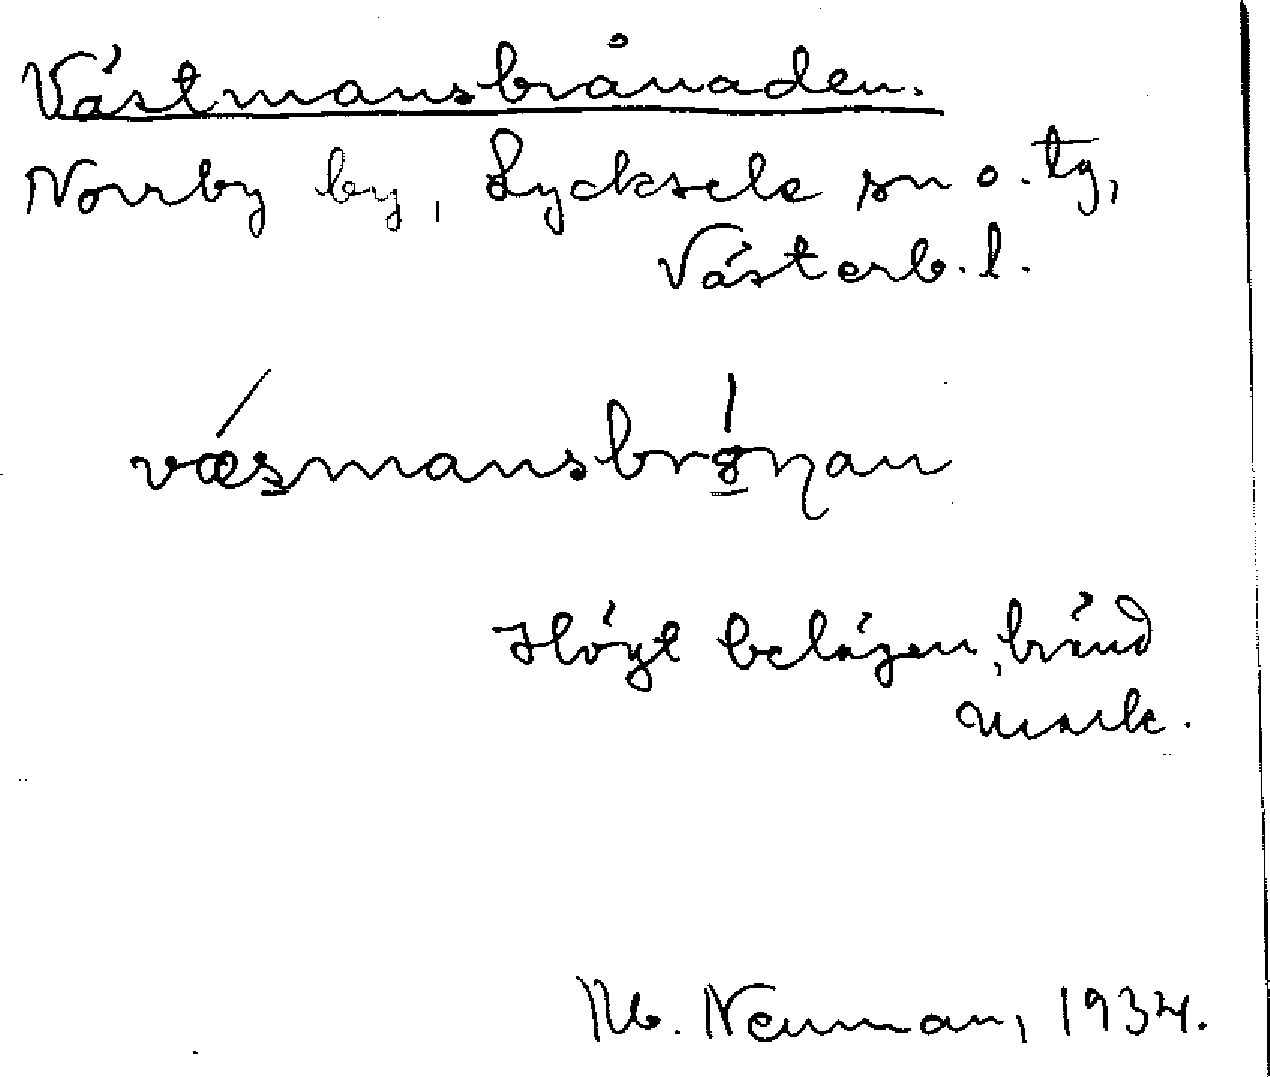 Västmansbrånaden.
Norrby by, Lycksele sn o. tg,
Västerb. l.
væsmansbrǫ́ɳan
Högt belägen, bränd
mark.
M. Neuman, 1934.